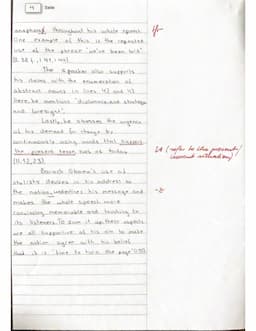 4 Date
anaphora throughout his whole speech.
One example of this is the repeated
use of the phrase "we've been told"
The speaker also supports
his claims with the enumeration of
abstract nouns in lines 41 and 42.
Here, he mentions "diplomacy, and strategy
and foresight".
Lastly, he stresses the urgency
of his demand for change by
continuously using words that
the present tense such as today
Barack Obama's use of
stylistic devices in his address to
the nation underlines his message and
makes the whole speech more
convincing, memorable and touching to
its listeners. To sum it up, these aspects
are all supportive of his aim to make
the nation agree with his belief
that it is time to turn the page
LA (refer to the present /
current situation)